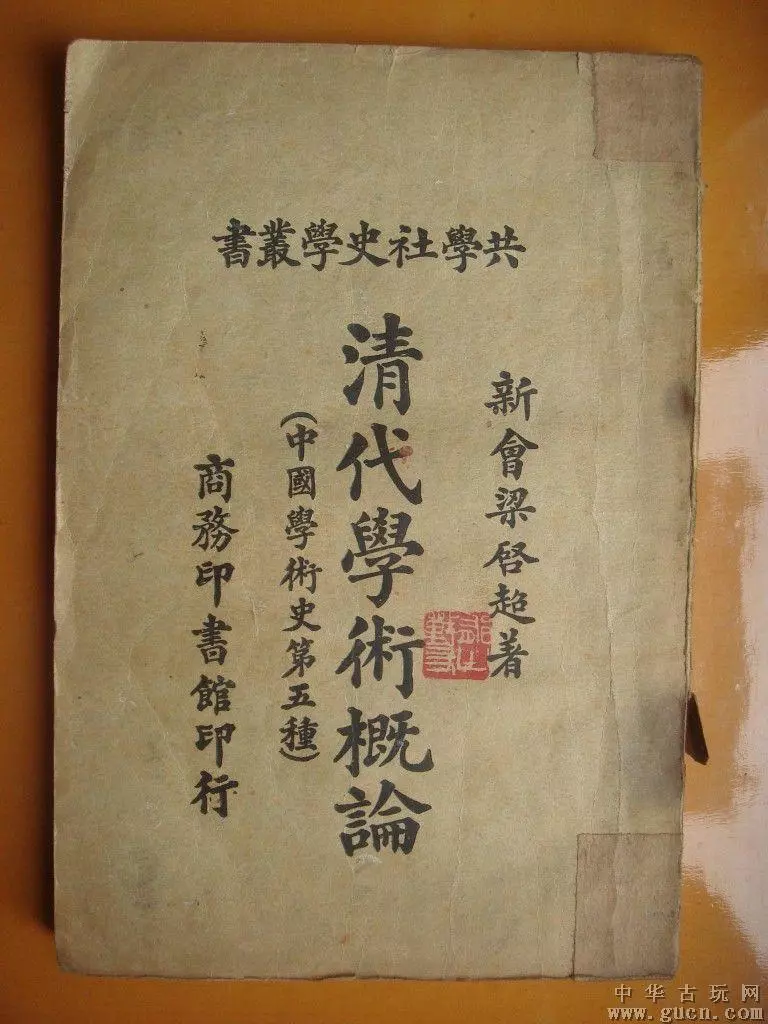 共學社史學叢書
新會梁啓超著
清代學術概論
(中國學術史第五種)
商務印書館印行
中华古玩网
www.gucn.com